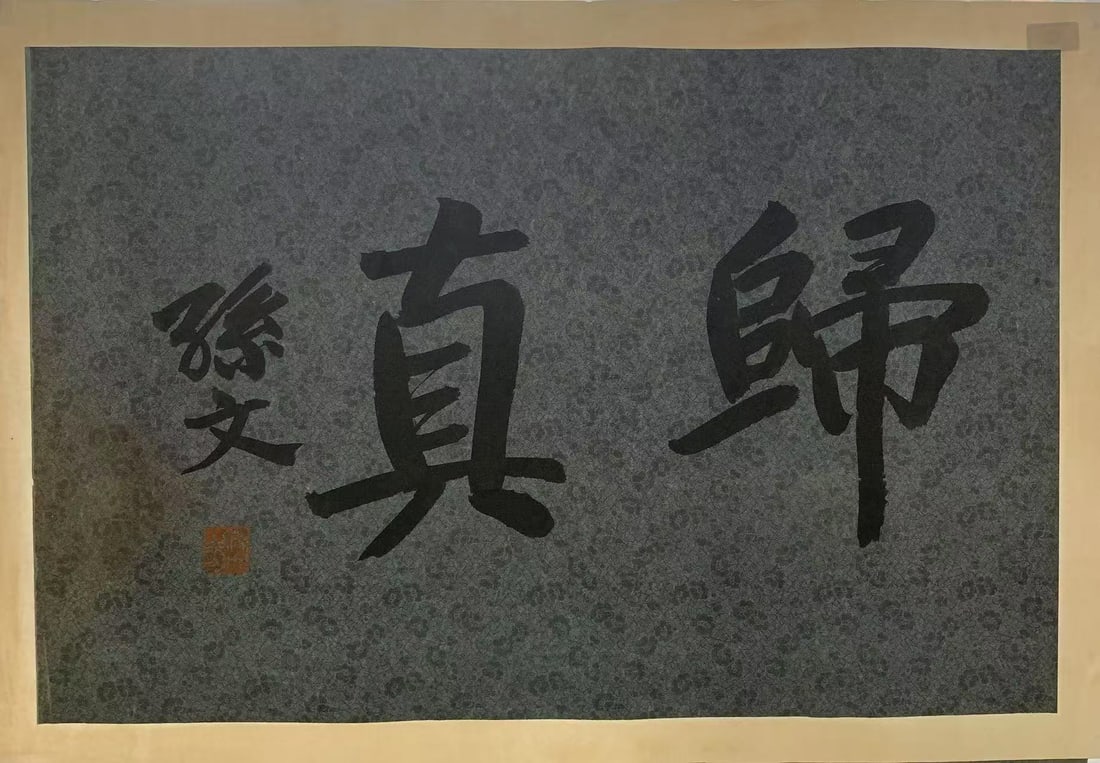 歸真
孫文